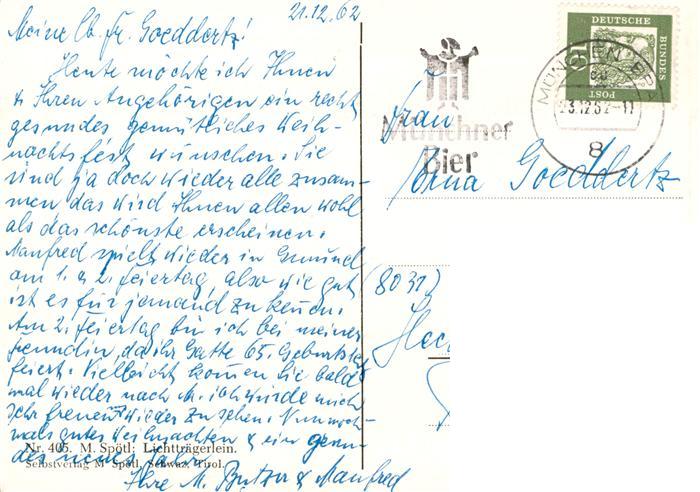 21.12.62
Meine lb. Fr. Goeddertz!
Heute möchte ich Ihnen
& Ihren Angehörigen ein recht
gesundes gemütliches Weih-
nachtsfest wünschen. Sie
sind ja doch wieder alle zusam-
men das wird Ihnen allen wohl
als das schönste erscheinen.
Manfred spielt wieder in Gmünd
am 1. & 2. Feiertag, also wie gut
ist es für jemand zu
Am 2. Feiertag bin ich bei meiner
Freundin, da ihr Gatte 65. Geburtstag
feiert. Vielleicht kommen Sie bald
mal wieder nach M. ich würde mich
sehr freuen wieder zu sehen. Nunnoch-
mals gutes Weihnachten & ein gesun-
des neues Jahr
Ihre M. & Manfred
Nr. 405. M. Spötl: Lichtträgerlein.
Selbstverlag M. Spötl, Schwaz, Tirol.
Münchner
Bier
DEUTSCHE
BUNDES
POST
15
MÜNCHEN BP
23.12.62-11
8
Frau
Erna Goeddertz
(8031)
Hec